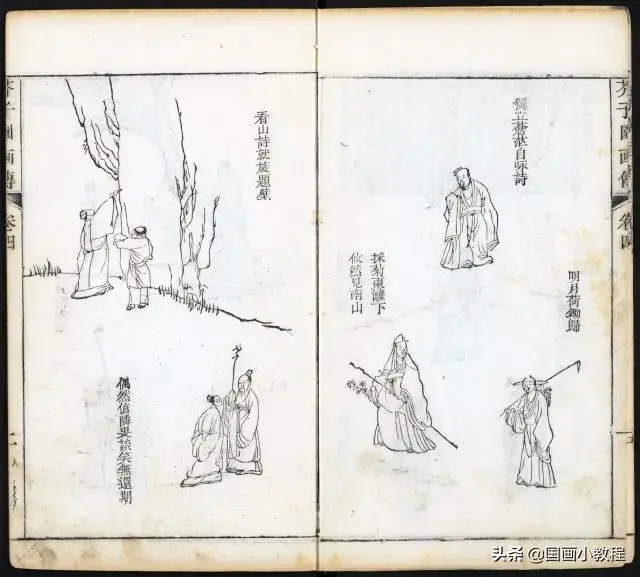 芥子園画傳
卷四
獨立蒼茫自咏詩
明月荷鋤歸
採菊東籬下
悠然見南山
看山詩就旋題壁
偶然值隣叟談笑無還期
芥子園画傳
卷四
头条 @国画小教程